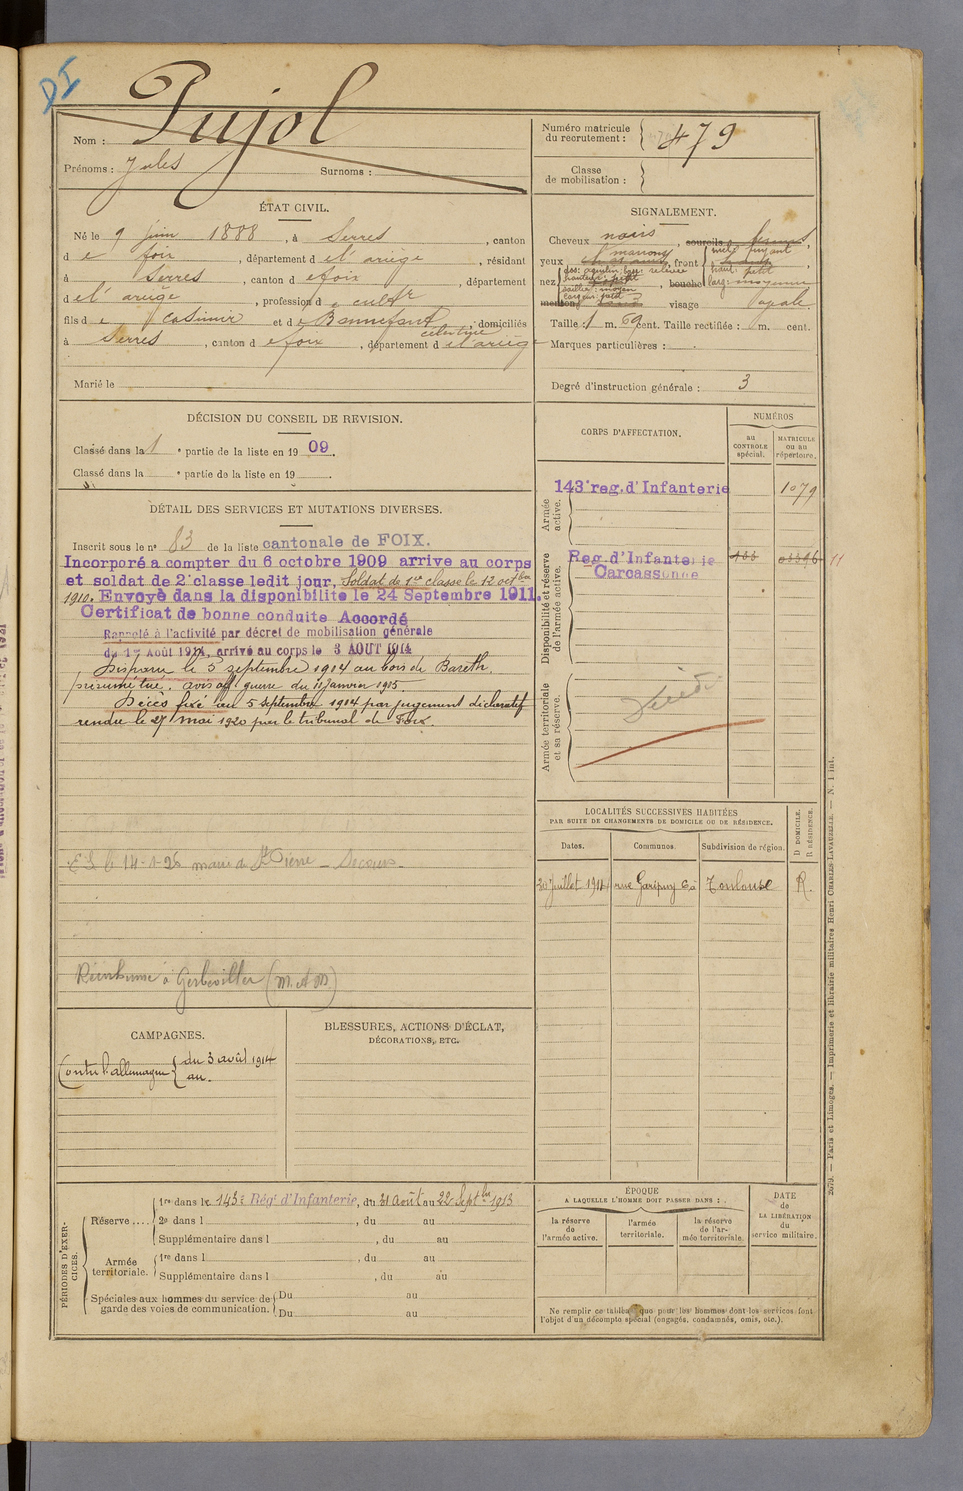 DI
Nom : Pujol
Prénoms : Jules Surnoms :
Numéro matricule du recrutement : 479
Classe de mobilisation :
ÉTAT CIVIL.
Né le 9 juin 1888, à Serres, canton
d e foix, département d e l'ariège, résidant
à Serres, canton d e foix, département
d e l'ariège, profession d e cultr
fils d e Casimir et d e Bonnefont celestine, domiciliés
à Serres, canton d e foix, département d e l'ariège
Marié le
SIGNALEMENT.
Cheveux noirs, sourcils
yeux marrons, front incl. fuyant haut. petit larg. moyenne
nez dos: aquilin base: relevée hauteur: petit saillie: moyen largeur: petit, bouche
menton visage ovale
Taille : 1 m. 69 cent. Taille rectifiée : m. cent.
Marques particulières :
Degré d'instruction générale : 3
DÉCISION DU CONSEIL DE REVISION.
Classé dans la 1 e partie de la liste en 1909.
Classé dans la e partie de la liste en 19
DÉTAIL DES SERVICES ET MUTATIONS DIVERSES.
Inscrit sous le n° 83 de la liste cantonale de FOIX.
Incorporé a compter du 6 octobre 1909 arrive au corps
et soldat de 2e classe ledit jour, Soldat de 1ere classe le 12 octbre
1910. Envoyé dans la disponibilité le 24 Septembre 1911.
Certificat de bonne conduite Accordé
Rappelé à l'activité par décret de mobilisation générale
du 1er Août 1914, arrivé au corps le 3 AOUT 1914
Disparu le 5 septembre 1914 au bois de Bareth.
présumé tué. avis off. guerre du 11 janvier 1915.
Décès fixé au 5 septembre 1914 par jugement déclaratif
rendu le 27 mai 1920 par le tribunal de Foix.
Pierre - Secours
Réinhumé à Gerbéviller (M. et M.)
CORPS D'AFFECTATION.
NUMÉROS
au CONTROLE spécial.
MATRICULE ou au répertoire.
Armée active.
143e reg. d'Infanterie 1079
Disponibilité et réserve de l'armée active.
Reg. d'Infanterie
Carcassonne
11
Armée territoriale et sa réserve.
Décédé
LOCALITÉS SUCCESSIVES HABITÉES
PAR SUITE DE CHANGEMENTS DE DOMICILE OU DE RÉSIDENCE.
Dates. Communes. Subdivision de région. D. DOMICILE. R. RÉSIDENCE.
20 Juillet 1914 rue Garipuy 6 à Toulouse R.
CAMPAGNES.
Contre l'allemagne du 3 août 1914
au.
BLESSURES, ACTIONS D'ÉCLAT,
DÉCORATIONS, ETC.
PÉRIODES D'EXERCICES.
Réserve ....
1re dans le 143e Régt d'Infanterie, du 31 Août au 22 Septbre 1913
2e dans l , du au
Supplémentaire dans l , du au
Armée territoriale.
1re dans l , du au
Supplémentaire dans l , du au
Spéciales aux hommes du service de garde des voies de communication.
Du au
Du au
ÉPOQUE
A LAQUELLE L'HOMME DOIT PASSER DANS :
la réserve de l'armée active.
l'armée territoriale.
la réserve de l'armée territoriale.
DATE de LA LIBÉRATION du service militaire.
Ne remplir ce tableau que pour les hommes dont les services font
l'objet d'un décompte spécial (engagés, condamnés, omis, etc.).
2579. — Paris et Limoges. — Imprimerie et librairie militaires Henri CHARLES-LAVAUZELLE. — N. 1 int.